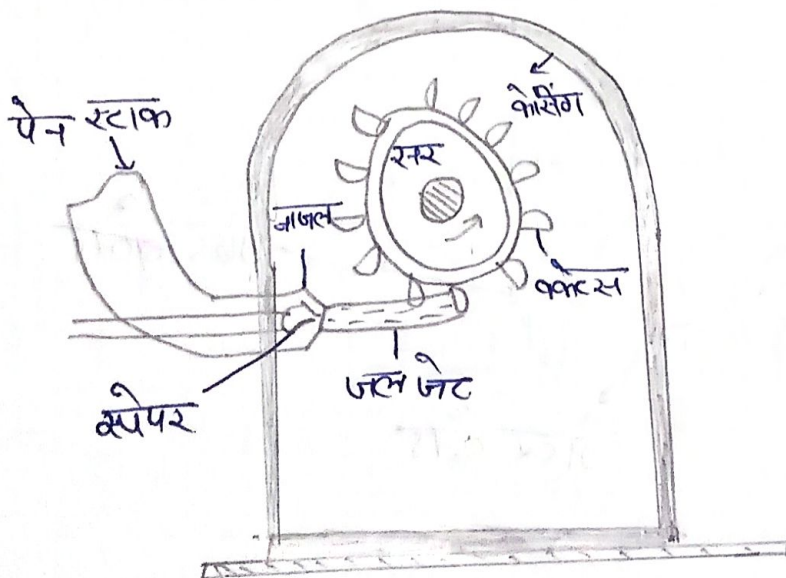 पेन स्टाक
केसिंग
रनर
नाजल
बकेटस
जल जेट
स्पेयर